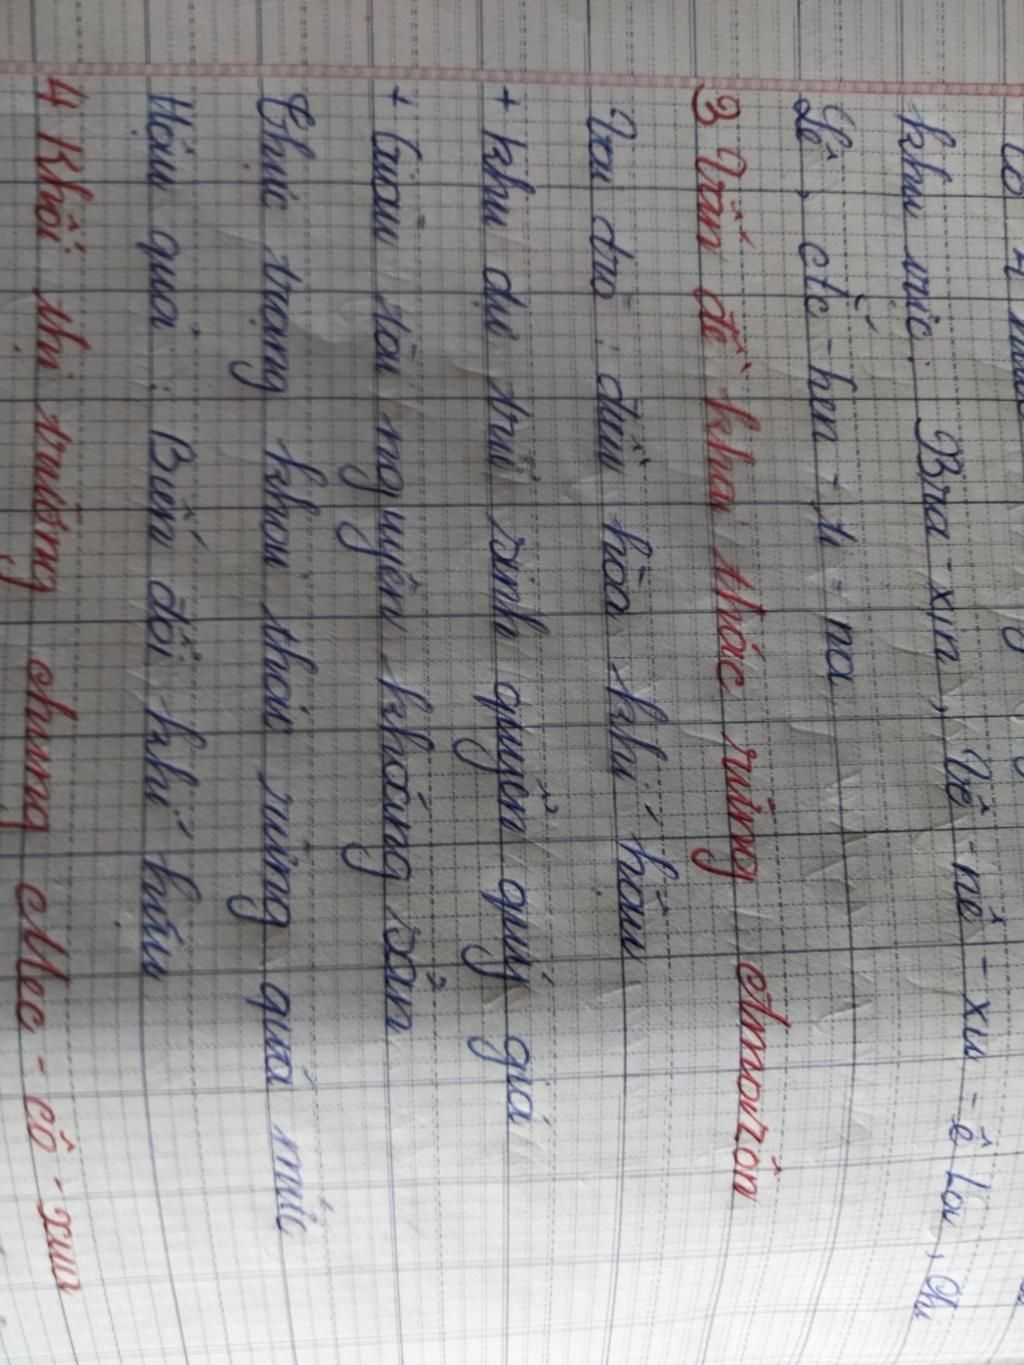 khu vực: Bra-xin, Vê-nê-xu-ê-la, Chi
Lê, Ac-hen-ti-na
3 Vấn đề khai thác rừng Amazôn
Vai trò: điều hòa khí hậu
+ khu dự trữ sinh quyển quý giá
+ Giàu tài nguyên khoáng sản
Thực trạng khai thác rừng quá mức
Hậu quả: Biến đổi khí hậu
4 Khối thị trường chung Mec-cô-xua